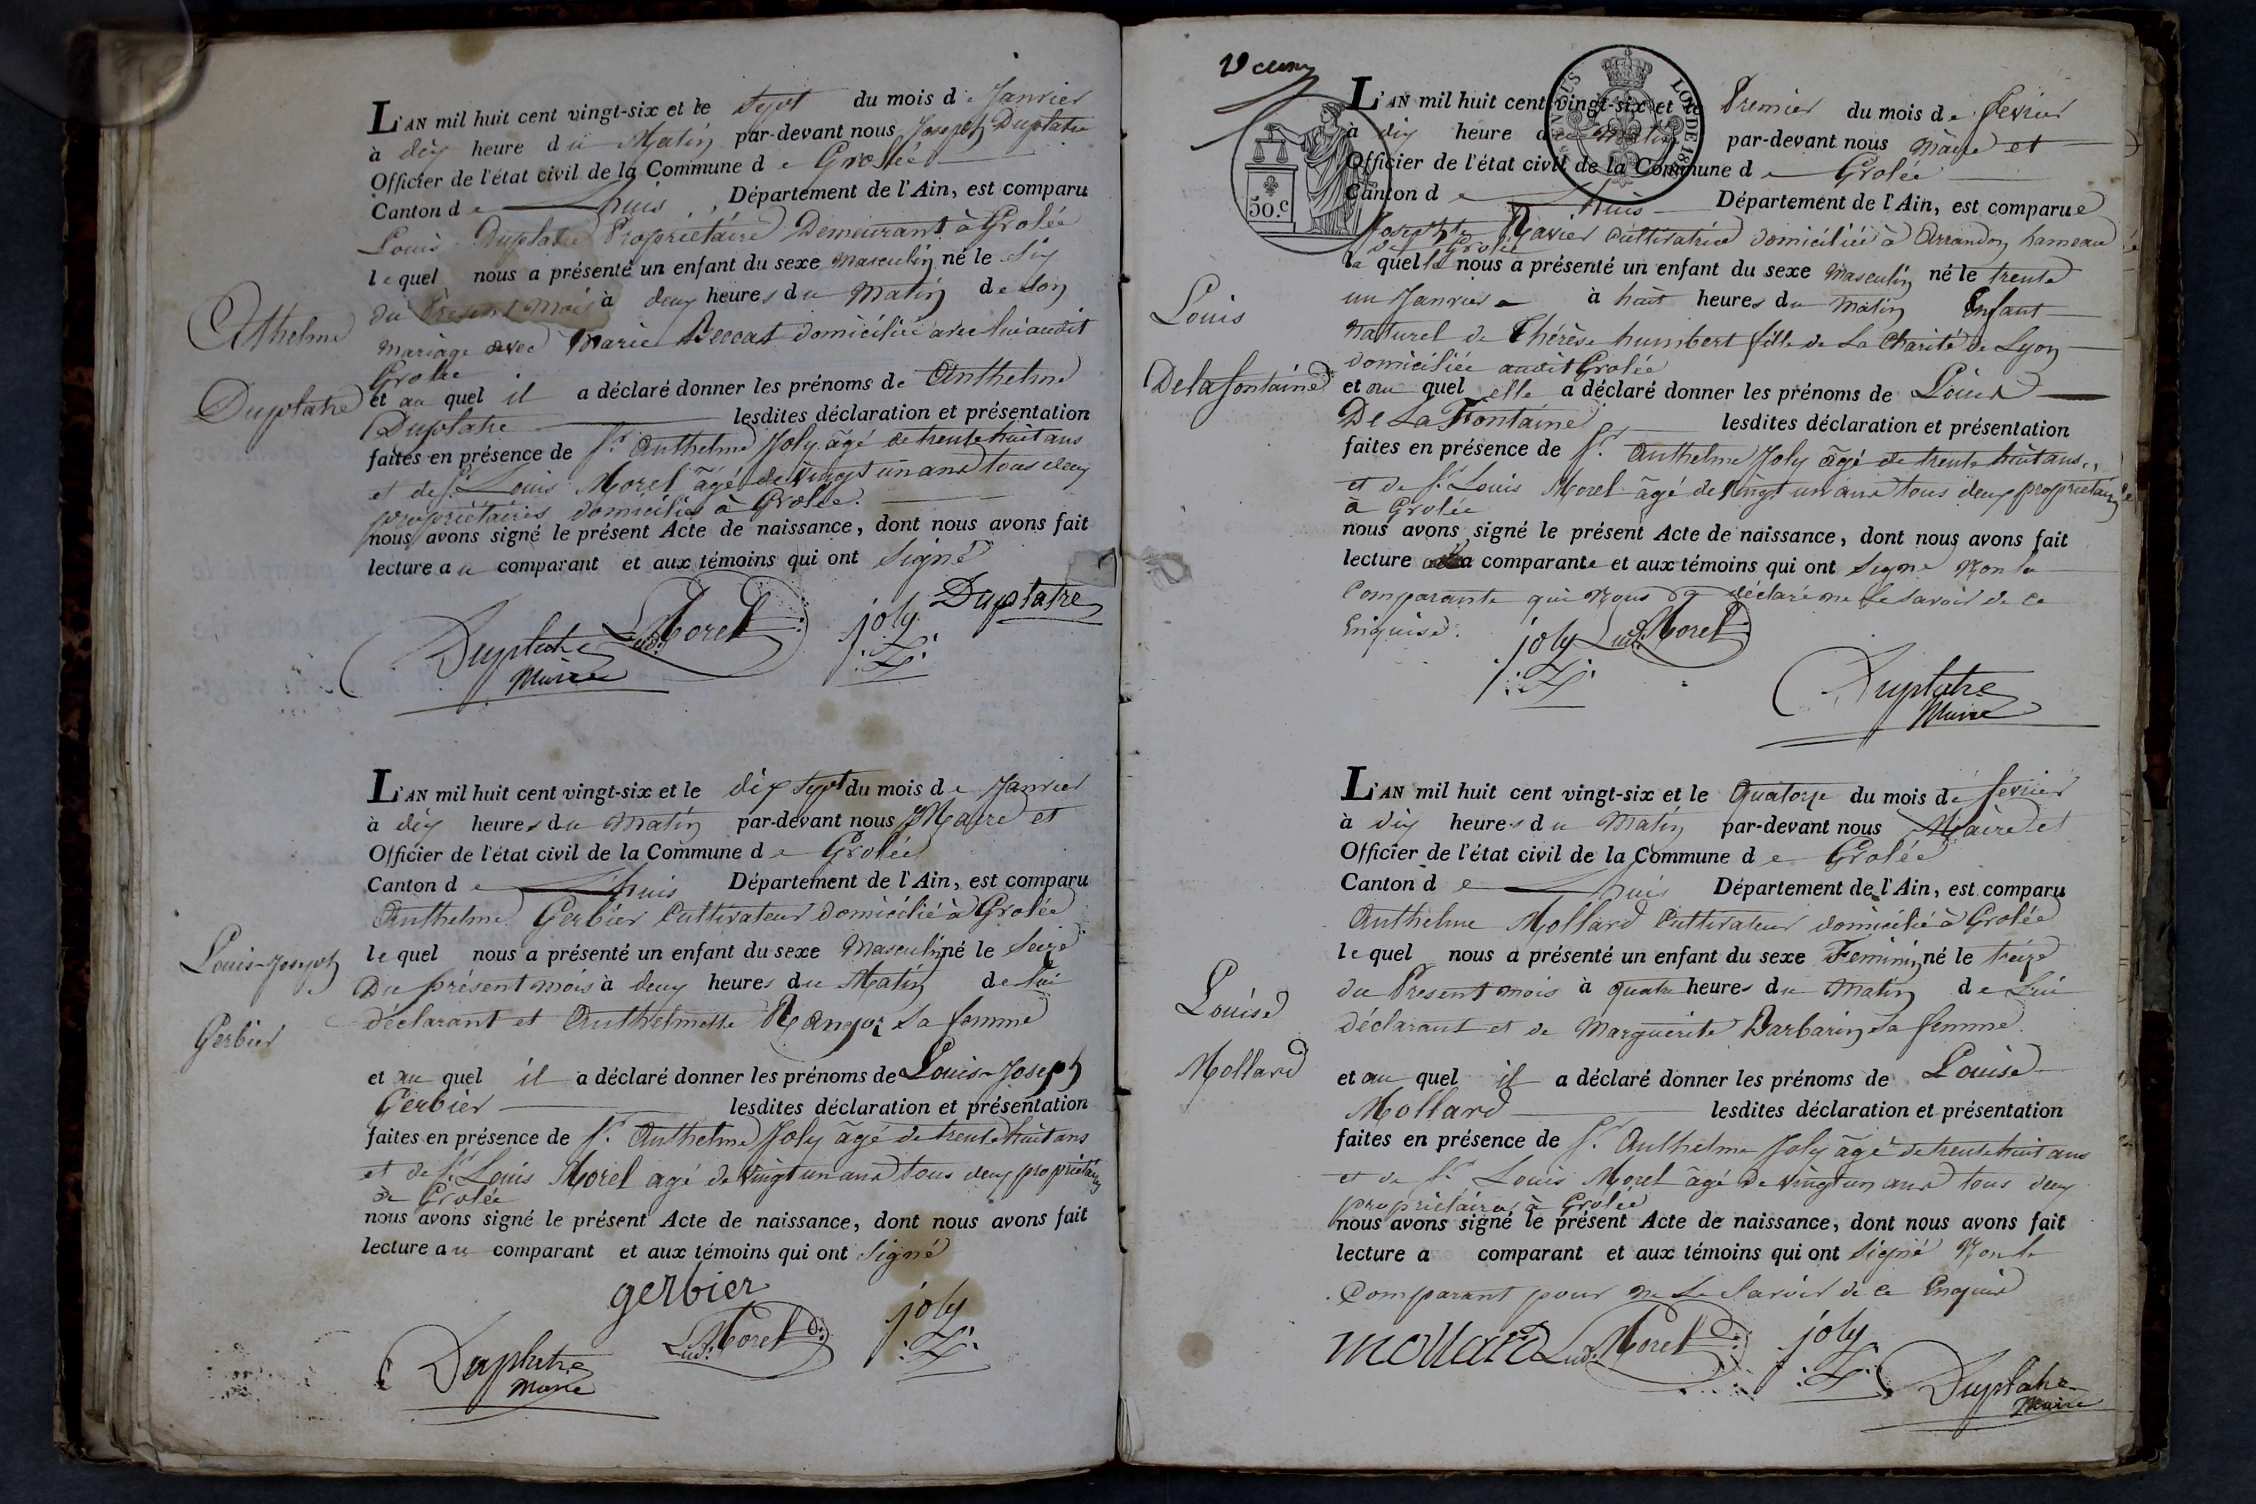 L'AN mil huit cent vingt-six et le Sept du mois de Janvier
à dix heure du Matin par-devant nous Joseph Duplatre
Officier de l'état civil de la Commune de Grolée
Canton de Lhuis, Département de l'Ain, est comparu
Louis Duplatre Propriétaire Demeurant à Grolée
lequel nous a présenté un enfant du sexe masculin né le Six
du Présent mois à deux heures du Matin de Son
mariage avec Marie Beccat domiciliée avec lui audit
Grolée
et au quel il a déclaré donner les prénoms de Anthelme
Duplatre lesdites déclaration et présentation
faites en présence de Sr. Anthelme Joly âgé de trente huit ans
et de Sr. Louis Morel âgé de vingt un ans tous deux
propriétaires domiciliés à Grolée.
nous avons signé le présent Acte de naissance, dont nous avons fait
lecture au comparant et aux témoins qui ont Signé
Anthelme
Duplatre
Duplatre
Maire
Lud. Morel
joly
Duplatre
L'AN mil huit cent vingt-six et le dix Sept du mois de Janvier
à dix heures du Matin par-devant nous Maire et
Officier de l'état civil de la Commune de Grolée
Canton de Lhuis Département de l'Ain, est comparu
Anthelme Gerbier Cultivateur domicilié à Grolée
lequel nous a présenté un enfant du sexe Masculin né le Seize
Du présent mois à deux heures du Matin de lui
déclarant et Anthelmette Sa femme
et au quel il a déclaré donner les prénoms de Louis-Joseph
Gerbier lesdites déclaration et présentation
faites en présence de Sr. Anthelme Joly âgé de trente huit ans
et de Sr. Louis Morel agé de vingt un ans tous deux propriétaires
à Grolée
nous avons signé le présent Acte de naissance, dont nous avons fait
lecture au comparant et aux témoins qui ont Signé
Louis-Joseph
Gerbier
gerbier
Duplatre
Maire
Lud. Morel
joly
50.c
LOI DE 18
L'AN mil huit cent vingt-six et le Premier du mois de fevrier
à dix heure du Matin par-devant nous Maire et
Officier de l'état civil de la Commune de Grolée
Canton de Lhuis Département de l'Ain, est comparue
Josephte Ravier Cultivatrice domiciliée à Arrandon hameau
de Grolée
la quelle nous a présenté un enfant du sexe Masculin né le trente
un Janvier à huit heures du matin Enfant
naturel de Thérèse humbert fille de La Charité de Lyon
domiciliée audit Grolée
et au quel elle a déclaré donner les prénoms de Louis
De La Fontaine lesdites déclaration et présentation
faites en présence de Sr. Anthelme Joly âgé de trente huit ans
et de Sr. Louis Morel âgé de vingt un ans tous deux propriétaires
à Grolée
nous avons signé le présent Acte de naissance, dont nous avons fait
lecture a la comparante et aux témoins qui ont Signé Non la
Comparante qui Nous a déclaré ne le Savoir de ce
Enquise.
Louis
Delafontaine
joly
Lud. Morel
Duplatre
Maire
L'AN mil huit cent vingt-six et le Quatorze du mois de fevrier
à dix heures du Matin par-devant nous Maire et
Officier de l'état civil de la Commune de Grolée
Canton de Lhuis Département de l'Ain, est comparu
Anthelme Mollard Cultivateur domicilié à Grolée
lequel nous a présenté un enfant du sexe Feminin né le treize
du Présent mois à quatre heures du Matin de Lui
déclarant et de Marguerite Barbarin Sa femme.
et au quel il a déclaré donner les prénoms de Louise
Mollard lesdites déclaration et présentation
faites en présence de Sr. Anthelme Joly âgé de trente huit ans
et de Sr. Louis Morel âgé de vingt un ans tous deux
propriétaires à Grolée
nous avons signé le présent Acte de naissance, dont nous avons fait
lecture a comparant et aux témoins qui ont Signé Non le
Comparant pour ne Le Savoir de ce Enquis
Louise
Mollard
mollard
Lud. Morel
joly
Duplatre
Maire